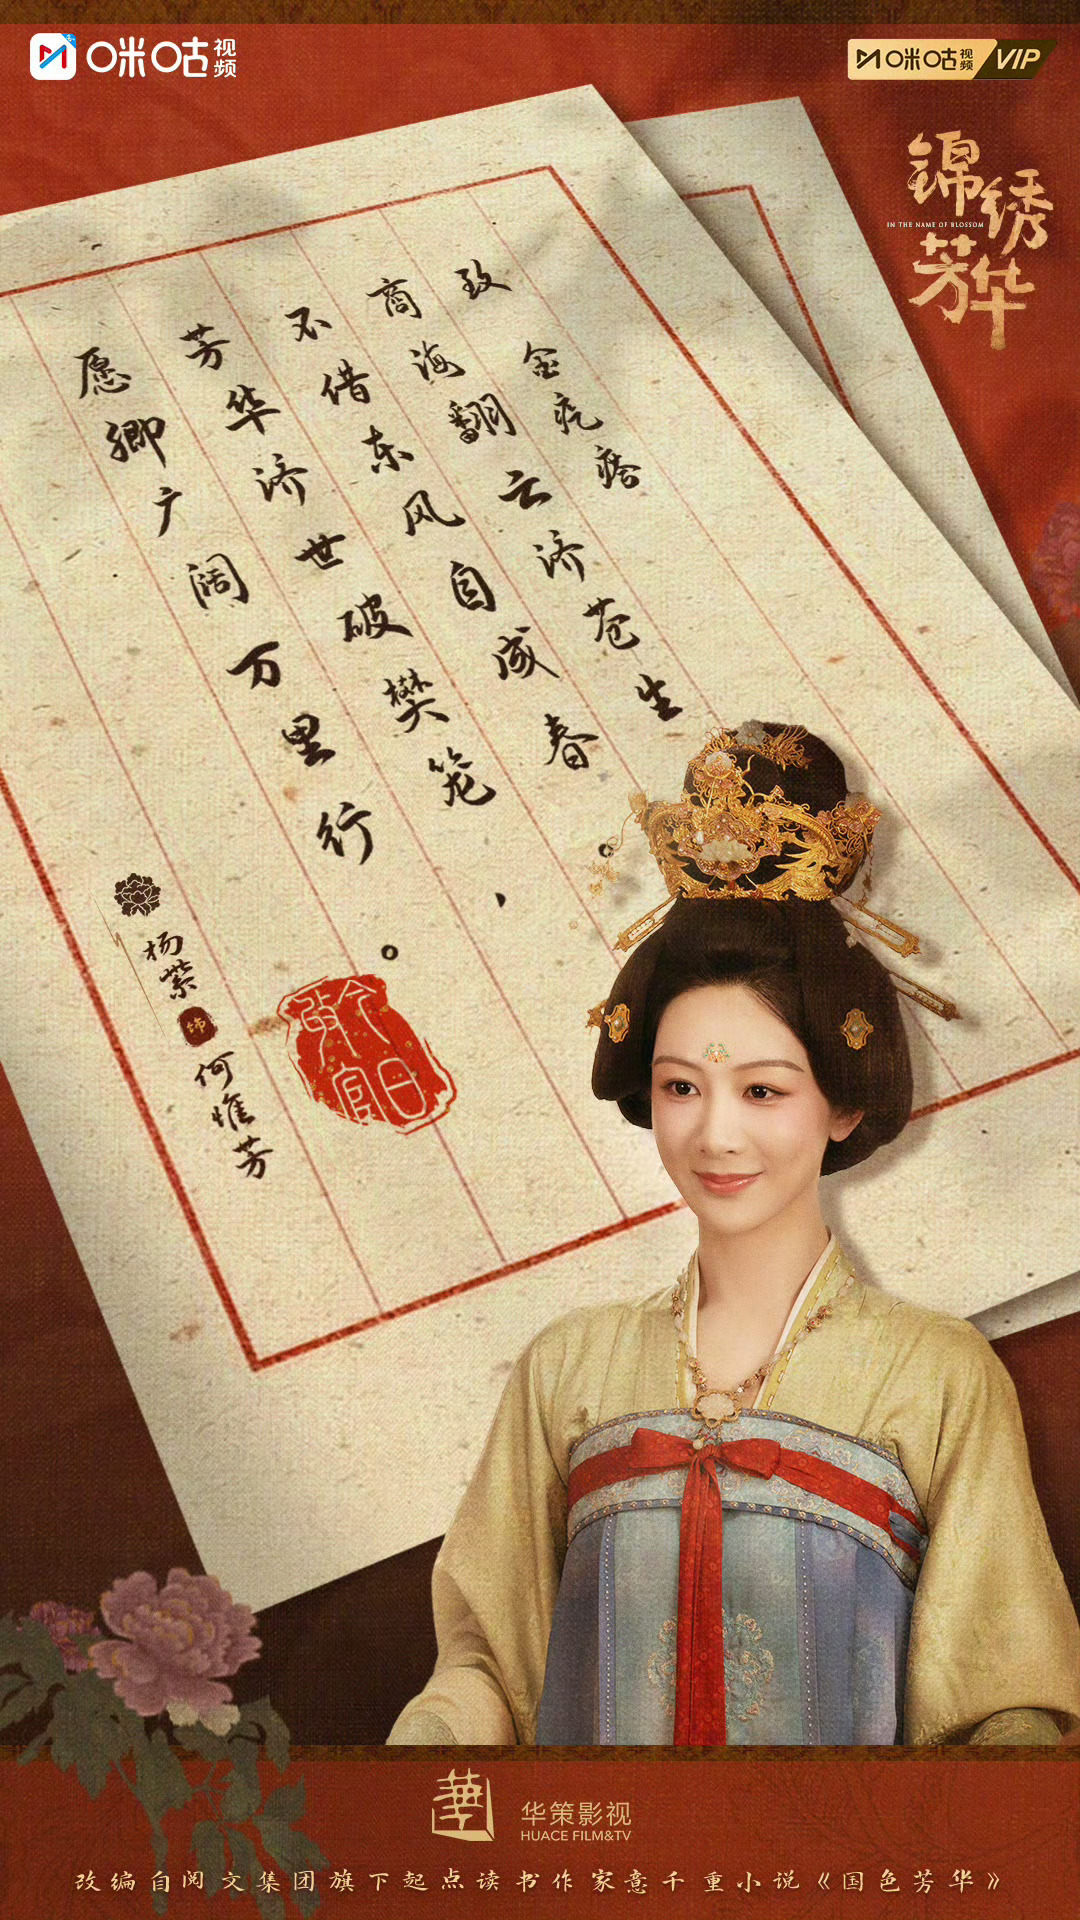 咪咕视频
咪咕视频 VIP
锦绣芳华
IN THE NAME OF BLOSSOM
致
金疙瘩
商海翻云济苍生
不借东风自成春。
芳华济世破樊笼、
愿卿广阔万里行。
杨紫
饰
何惟芳
今日
宜
华策影视
HUACE FILM&TV
改编自阅文集团旗下起点读书作家意千重小说《国色芳华》